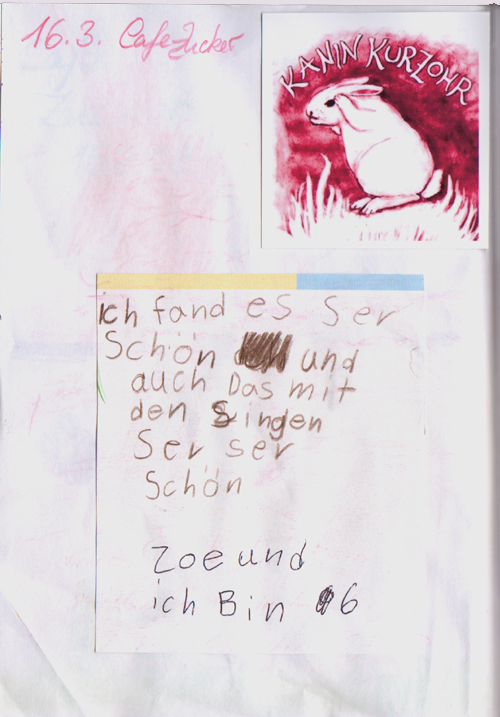 16.3. Cafe Zucker
KANIN KURZOHR
ich fand es Ser
Schön und
auch Das mit
den Singen
Ser ser
Schön
Zoe und
ich Bin 6